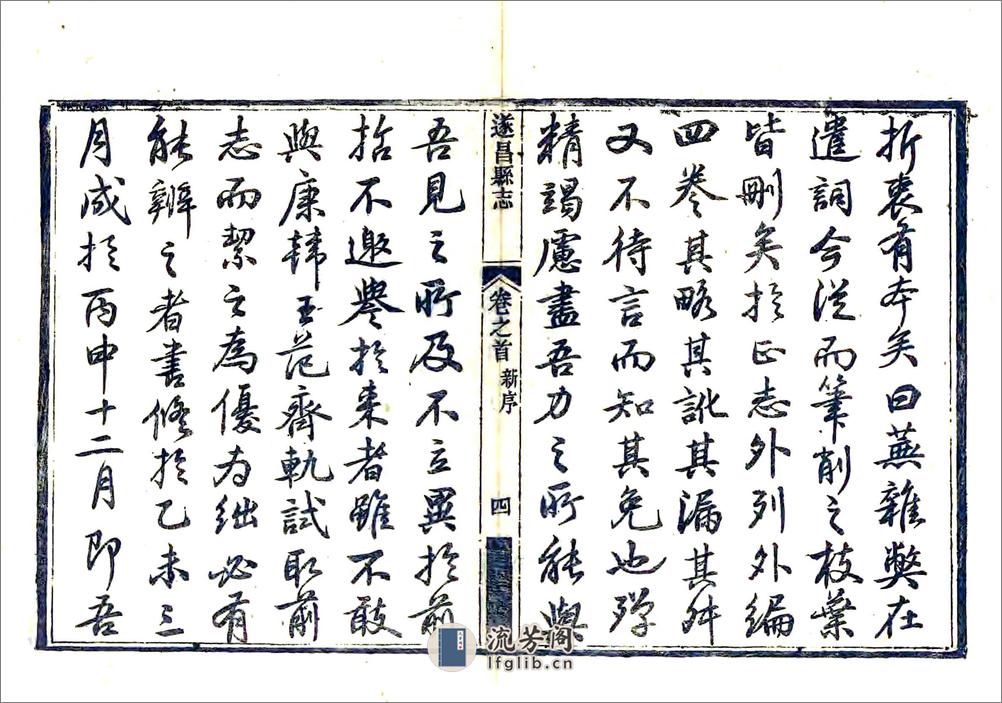 折衷有本矣曰蕪雜弊在
遣詞今從而筆削之枝葉
皆刪矣於正志外列外編
四卷其略其訛其漏其舛
又不待言而知其免也殫
精竭慮盡吾力之所能與
遂昌縣志
卷之首
新序
四
吾見之所及不立異於前
哲不邀譽於來者雖不敢
與康韓王范齊軌試取前
志而絜之為優為絀必有
能辨之者書修於乙未三
月成於丙申十二月即吾
流芳阁
lfglib.cn